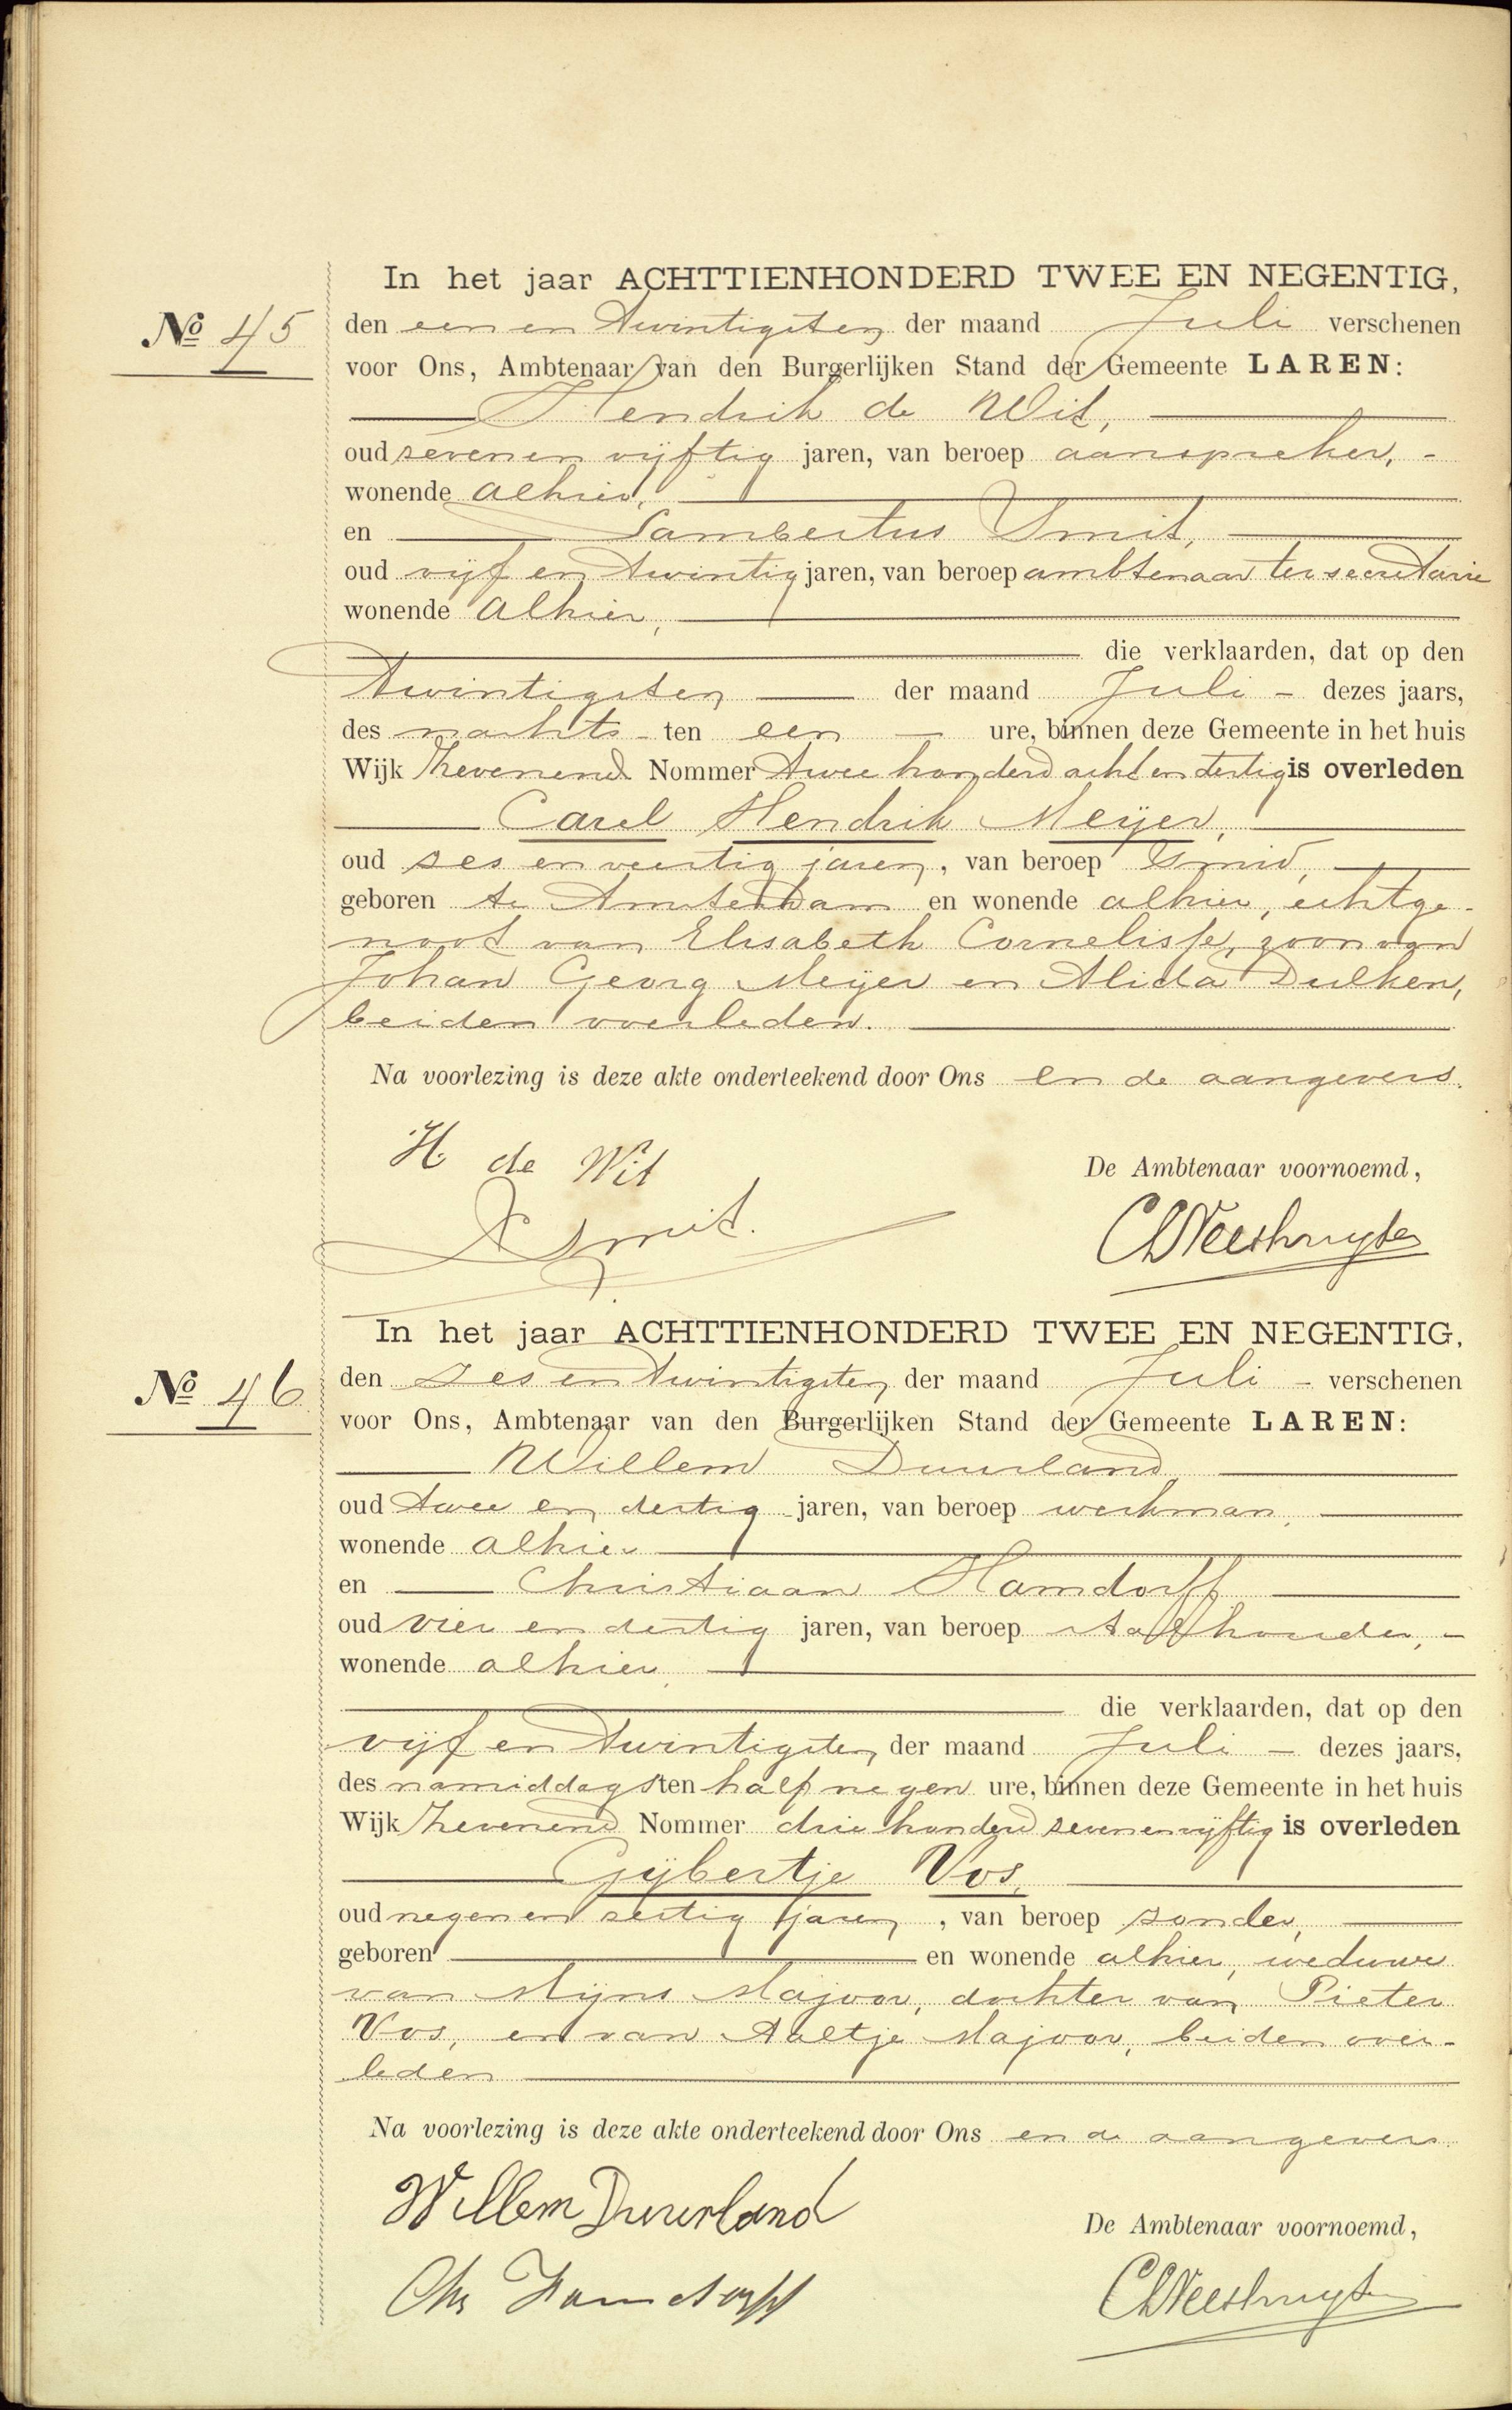 In het jaar ACHTTIENHONDERD TWEE EN NEGENTIG,
No 45
den een en twintigsten der maand Juli verschenen
voor Ons, Ambtenaar van den Burgerlijken Stand der Gemeente LAREN:
Hendrik de Wit,
oud zevenen vijftig jaren, van beroep aanspreker, -
wonende alhier,
en Lambertus Smit,
oud vijf en twintig jaren, van beroep ambtenaar ter secretarie
wonende alhier,
die verklaarden, dat op den
twintigsten der maand Juli - dezes jaars,
des nachts - ten een - ure, binnen deze Gemeente in het huis
Wijk Zevenend Nommer twee honderd acht en dertig is overleden
Carel Hendrik Meijer,
oud zes en veertig jaren, van beroep Smid,
geboren te Amsterdam en wonende alhier, echtge-
noot van Elisabeth Cornelisse, zoon van
Johan Georg Meijer en Alida Dulken,
beiden overleden.
Na voorlezing is deze akte onderteekend door Ons en de aangevers.
H de Wit
De Ambtenaar voornoemd,
L Smit.
In het jaar ACHTTIENHONDERD TWEE EN NEGENTIG,
No 46
den Zes en twintigsten der maand Juli - verschenen
voor Ons, Ambtenaar van den Burgerlijken Stand der Gemeente LAREN:
Willem Duurland
oud twee en dertig jaren, van beroep werkman,
wonende alhier
en Christiaan Hamdorff
oud vier en dertig jaren, van beroep stalhouder, -
wonende alhier,
die verklaarden, dat op den
vijf en twintigsten der maand Juli - dezes jaars,
des namiddags ten half negen ure, binnen deze Gemeente in het huis
Wijk Zevenend Nommer drie honderd zevenenvijftig is overleden
Gijbertje Vos,
oud negen en zestig jaren, van beroep zonder,
geboren en wonende alhier, weduwe
van Mijns Majoor, dochter van Pieter
Vos, en van Aaltje Majoor, beiden over-
leden
Na voorlezing is deze akte onderteekend door Ons en de aangevers.
Willem Duurland
De Ambtenaar voornoemd,
Chr Hamdorff